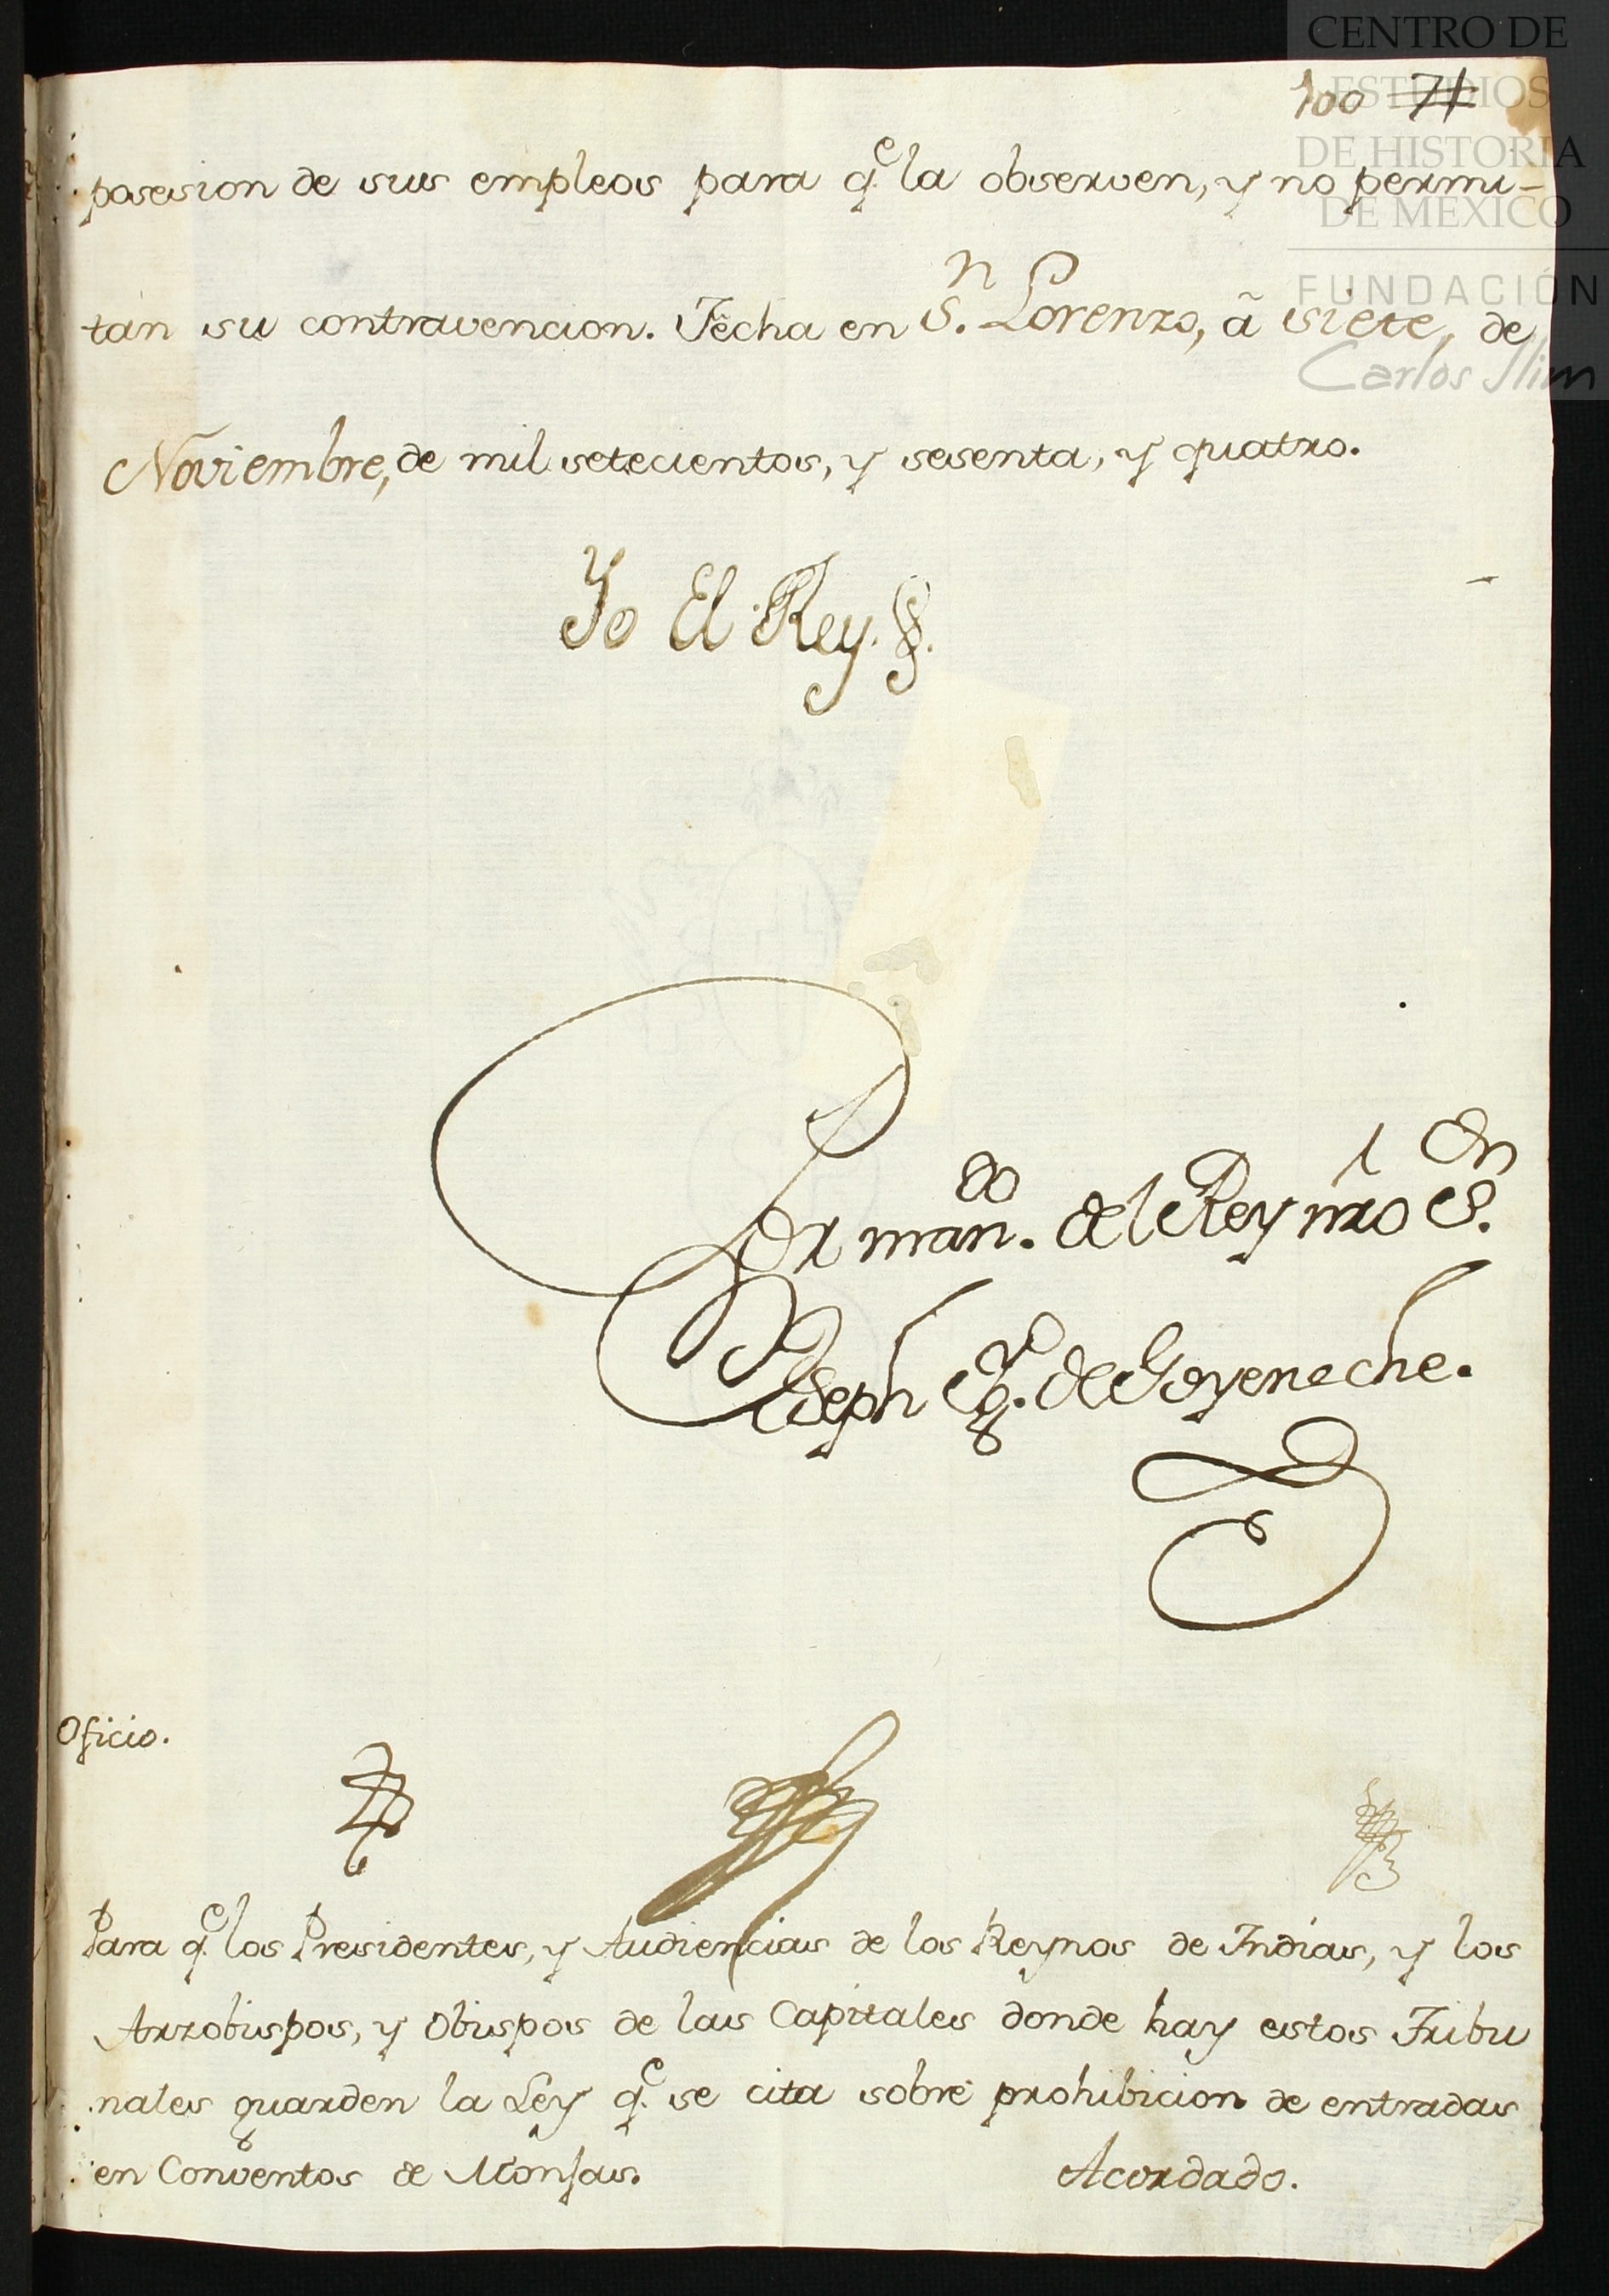 CENTRO DE
ESTUDIOS
DE HISTORIA
DE MEXICO
FUNDACIÓN
Carlos Slim
100 71
posesion de sus empleos para q.e la observen, y no permi-
tan su contravencion. Fecha en S.n Lorenzo, â siete, de
Noviembre, de mil setecientos, y sesenta, y quatro.
Yo El Rey.
Por man.do del Rey nro S.or
Joseph Ig.o de Goyeneche.
Oficio.
Para q.e los Presidentes, y Audiencias de los Reynos de Indias, y los
Arzobispos, y Obispos de las Capitales donde hay estos Tribu
nales guarden la Ley q.e se cita sobre prohibicion de entradas
en Conventos de Monjas. Acordado.